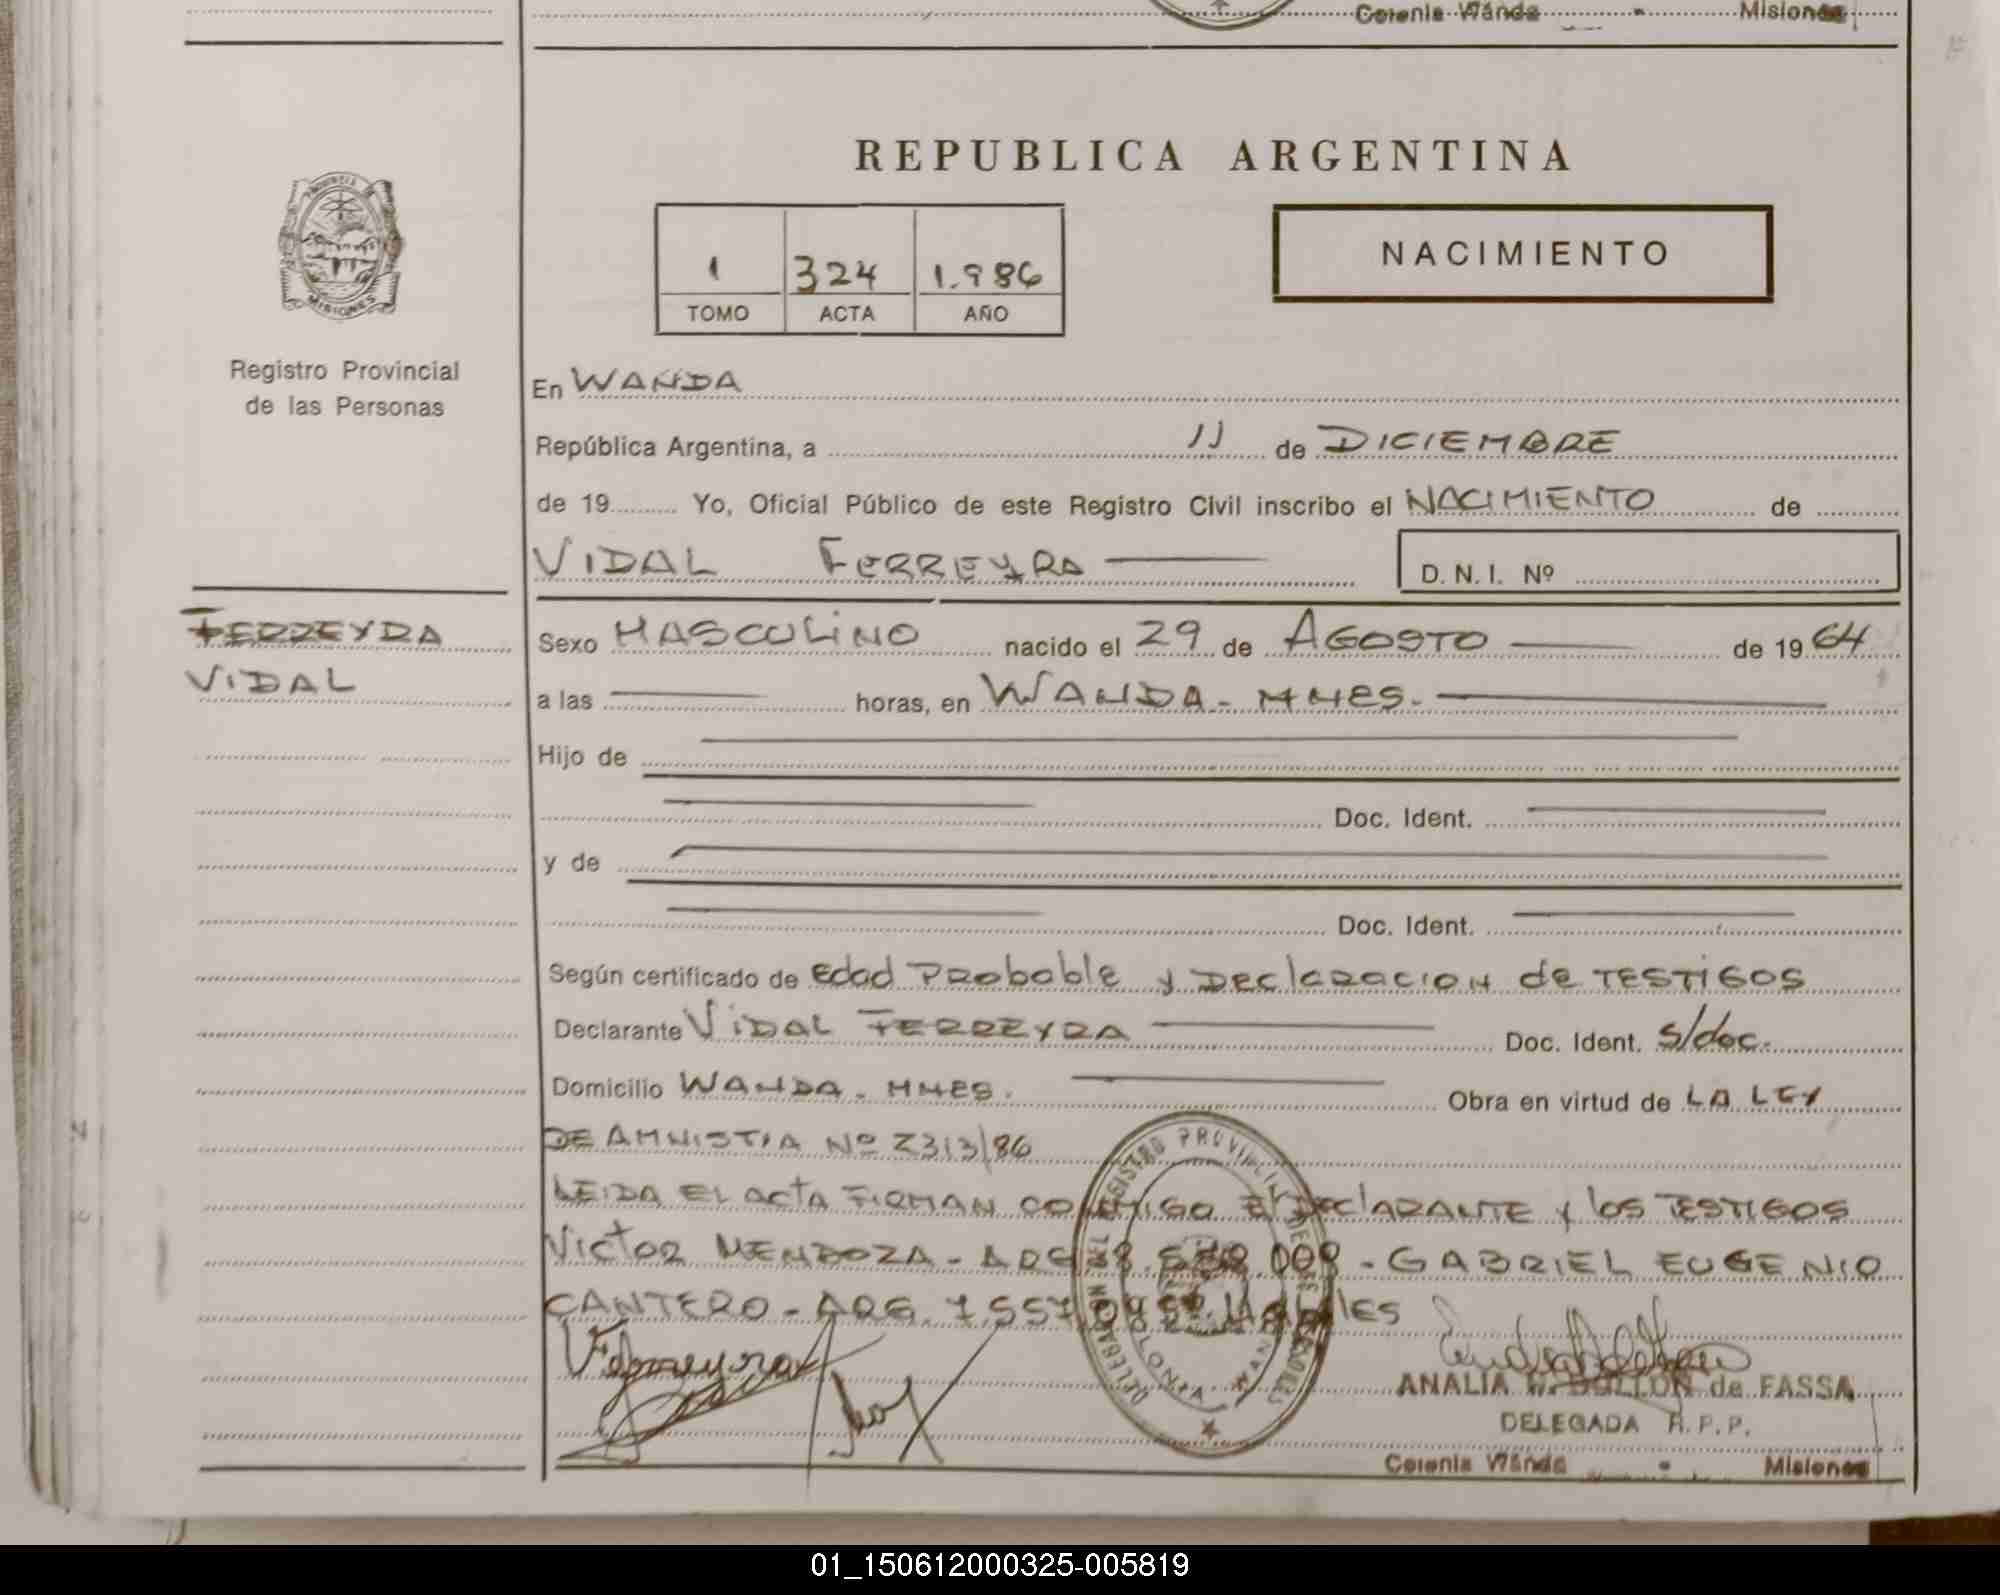 Colonia Wanda - Misiones
REPUBLICA ARGENTINA
PROVINCIA DE
MISIONES
1 324 1.986
TOMO ACTA AÑO
NACIMIENTO
Registro Provincial
de las Personas
En WANDA
República Argentina, a 11 de DICIEMBRE
de 19 Yo, Oficial Público de este Registro Civil inscribo el NACIMIENTO de
VIDAL FERREYRA
D. N. I. Nº
FERREYRA
VIDAL
Sexo MASCULINO nacido el 29 de AGOSTO de 19 64
a las horas, en WANDA - MNES.
Hijo de
Doc. Ident.
y de
Doc. Ident.
Según certificado de Edad PRObable y DEClARACION de TESTIGOS
Declarante VIDAL FERREYRA Doc. Ident. s/doc.
Domicilio WANDA - MNES. Obra en virtud de LA LEY
DE AMNISTIA Nº 2313/86
LEIDA EL ACTA FIRMAN CONMIGO El DEClARANTE y los TESTIGOS
VICTOR MENDOZA - ARG. - GABRIEL EUGENIO
CANTERO - ARG. 7.557
VFerreyra
ANALIA de FASSA
DELEGADA R. P. P.
Colonia Wanda - Misiones
01_150612000325-005819